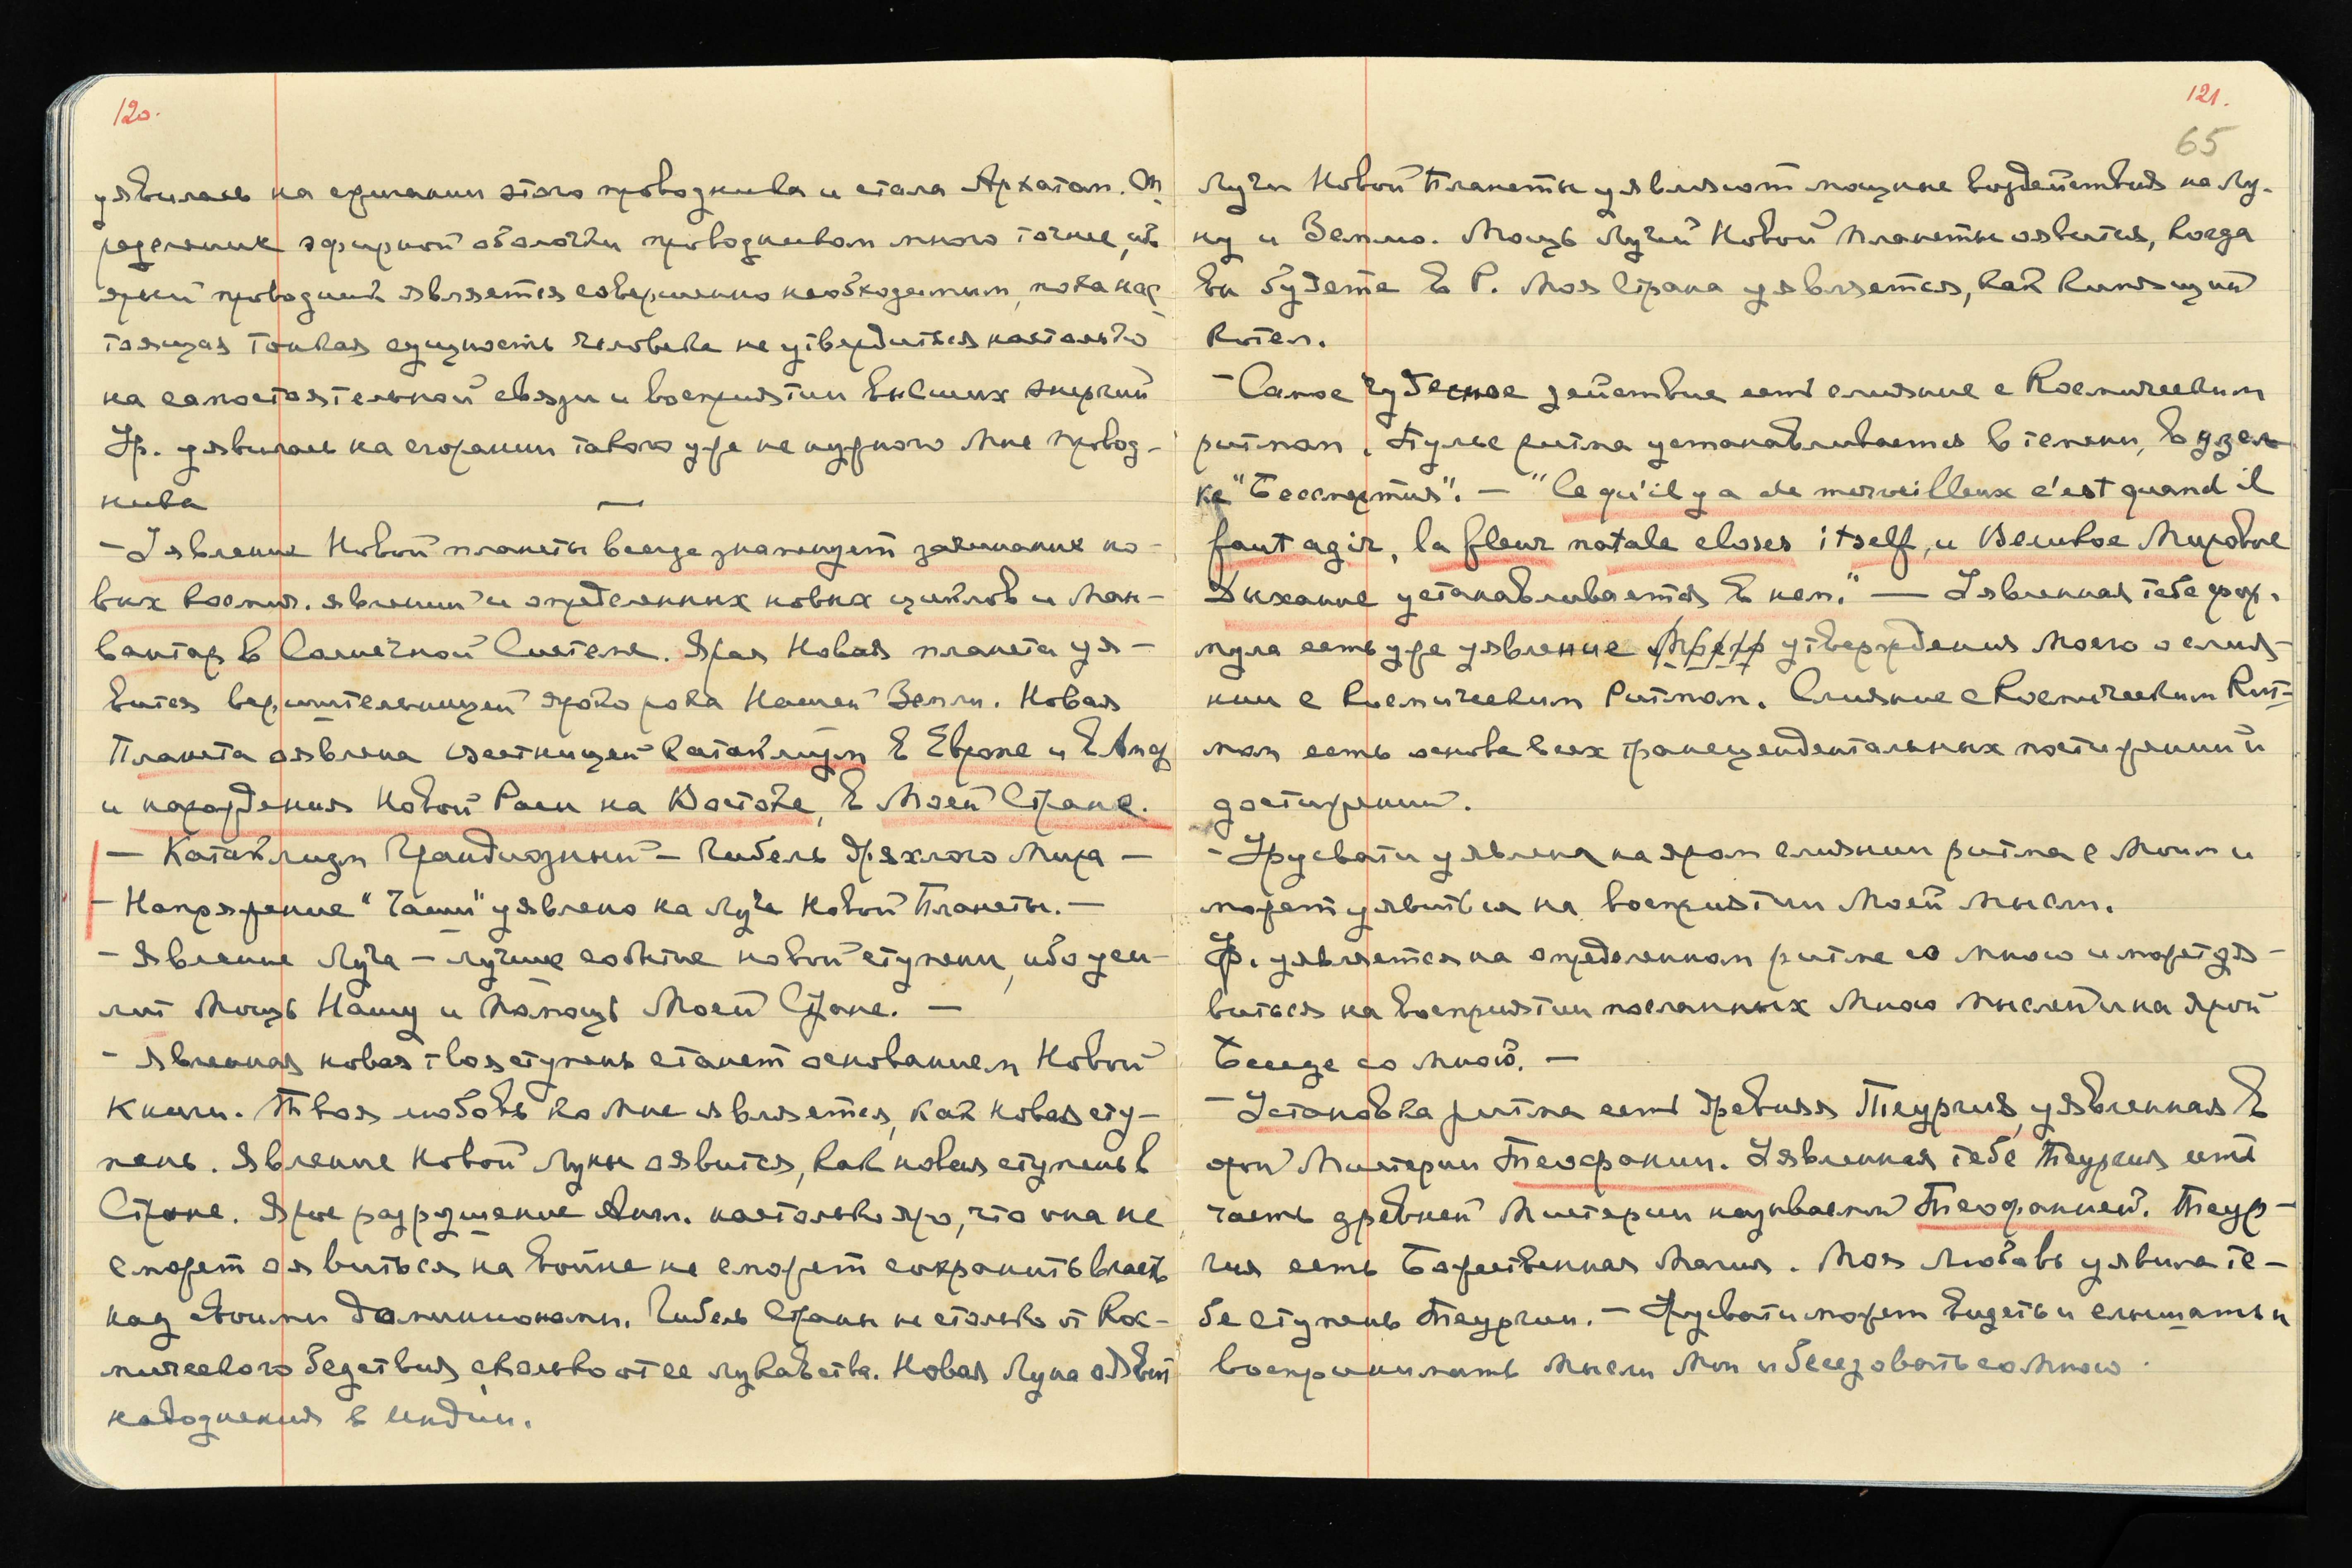 120.
уявилась на сжигании этого проводника и стала Архатом. Оп
ределение эфирной оболочки проводником много точнее, ибо
ярый проводник является совершенно необходимым, пока нас
тоящая тонкая сущность человека не утвердится настолько
на самостоятельной связи и восприятии высших энергий
Ур. уявилась на сгорании такого уже не нужного Мне провод-
ника
— Уявление Новой планеты всегда знаменует зачинание но-
вых космич. явлений и определенных новых циклов и Ман-
вантар в Солнечной Системе. Ярая Новая планета уя-
вится вершительницей ярого рока Нашей Земли. Новая
Планета оявлена Вестницей Катаклизм в Европе и в Анг
и нарождения Новой Расы на Востоке, в Моей Стране.
— Катаклизм Грандиозный — Гибель Дряхлого Мира —
— Напряжение "Чаши" уявлено на Луче Новой Планеты. —
— Явление Луча — лучшее событие новой ступени, ибо уси-
лит Мощь Нашу и Помощь Моей Стране. —
— Явленная новая твоя ступень станет основанием Новой
Книги. Твоя любовь ко Мне является, как новая сту-
пень. Явление Новой Луны оявится, как новая ступень в
Стране. Ярое разрушение Англ. настолько яро, что она не
сможет оявиться на войне не сможет сохранить власть
над своими доминионами. Гибель Страны не столько от Кос-
мического бедствия сколько от ее лукавства. Новая Луна оявит
наводнения в Индии.
121.
65
Лучи Новой Планеты уявляют мощные воздействия на Лу-
ну и Землю. Мощь Лучей Новой Планеты оявится, когда
вы будете в Р. Моя Страна уявляется, как кипящий
котел.
— Самое чудесное действие есть слияние с Космическим
ритмом. Пульс ритма устанавливается в темени, в узел
ке "Бессмертия". — "Ce qu'il y a de merveilleux c'est quand il
faut agir, la fleur natale closes itself, и Великое Мировое
Дыхание устанавливается в нем." — Уявленная тебе фор-
мула есть уже уявление утверждения Моего о слия-
нии с Космическим Ритмом. Слияние с Космическим Рит-
мом есть основа всех трансцендентальных постижений и
достижений.
— Урусвати уявлена на яром слиянии ритма с Моим и
может уявиться на восприятии Моей Мысли.
Ур. уявляется на определенном ритме со Мною и может уя-
виться на восприятии посланных Мною Мыслей и на ярой
Беседе со Мной. —
— Установка ритма есть древняя Теургия, уявленная в
ярой Мистерии Теофании. Уявленная тебе Теургия есть
часть древней Мистерии называемой Теофанией. Теур-
гия есть Божественная Магия. Моя Любовь уявила те-
бе ступень Теургии. — Урусвати может видеть и слышать и
воспринимать Мысли Мои и беседовать со Мною.